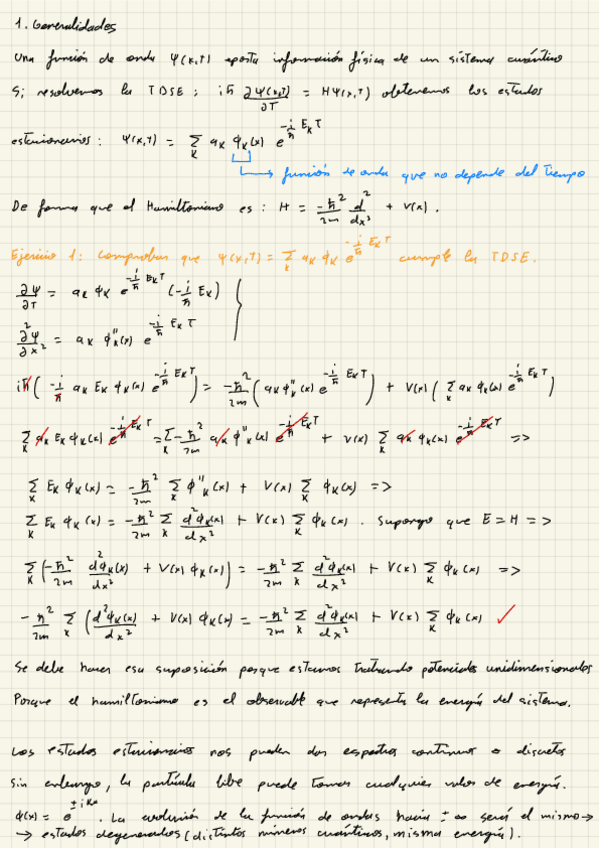 1. Generalidades
Una función de onda ψ(x,T) aporta información física de un sistema cuántico
Si resolvemos la TDSE: iħ ∂ψ(x,T)/∂T = Hψ(x,T) obtenemos los estados
estacionarios: ψ(x,T) = Σ_K a_K ϕ_K(x) e^{-i/ħ E_K T}
función de onda que no depende del tiempo
De forma que el Hamiltoniano es: H = -ħ²/2m d²/dx² + V(x).
Ejercicio 1: Comprobar que ψ(x,T) = Σ_K a_K ϕ_K e^{-i/ħ E_K T} cumple la TDSE.
∂ψ/∂T = a_K ϕ_K e^{-i/ħ E_K T} (-i/ħ E_K)
∂²ψ/∂x² = a_K ϕ''_K(x) e^{-i/ħ E_K T}
iħ(-i/ħ a_K E_K ϕ_K(x) e^{-i/ħ E_K T}) = -ħ²/2m (a_K ϕ''_K(x) e^{-i/ħ E_K T}) + V(x)(Σ_K a_K ϕ_K(x) e^{-i/ħ E_K T})
Σ_K a_K E_K ϕ_K(x) e^{-i/ħ E_K T} = Σ_K -ħ²/2m a_K ϕ''_K(x) e^{-i/ħ E_K T} + V(x) Σ_K a_K ϕ_K(x) e^{-i/ħ E_K T} =>
Σ_K E_K ϕ_K(x) = -ħ²/2m Σ_K ϕ''_K(x) + V(x) Σ_K ϕ_K(x) =>
Σ_K E_K ϕ_K(x) = -ħ²/2m Σ_K d²ϕ_K(x)/dx² + V(x) Σ_K ϕ_K(x). Supongo que E = H =>
Σ_K (-ħ²/2m d²ϕ_K(x)/dx² + V(x) ϕ_K(x)) = -ħ²/2m Σ_K d²ϕ_K(x)/dx² + V(x) Σ_K ϕ_K(x) =>
-ħ²/2m Σ_K (d²ϕ_K(x)/dx² + V(x) ϕ_K(x) = -ħ²/2m Σ_K d²ϕ_K(x)/dx² + V(x) Σ_K ϕ_K(x) ✓
Se debe hacer esa suposición porque estamos tratando potenciales unidimensionales
Porque el hamiltoniano es el observable que representa la energía del sistema.
Los estados estacionarios nos pueden dar espectros continuos o discretos
Sin embargo, la partícula libre puede tomar cualquier valor de energía.
ϕ(x) = e^{±iKx}. La evolución de la función de ondas hacia ±∞ será el mismo →
→ estados degenerados (distintos números cuánticos, misma energía).